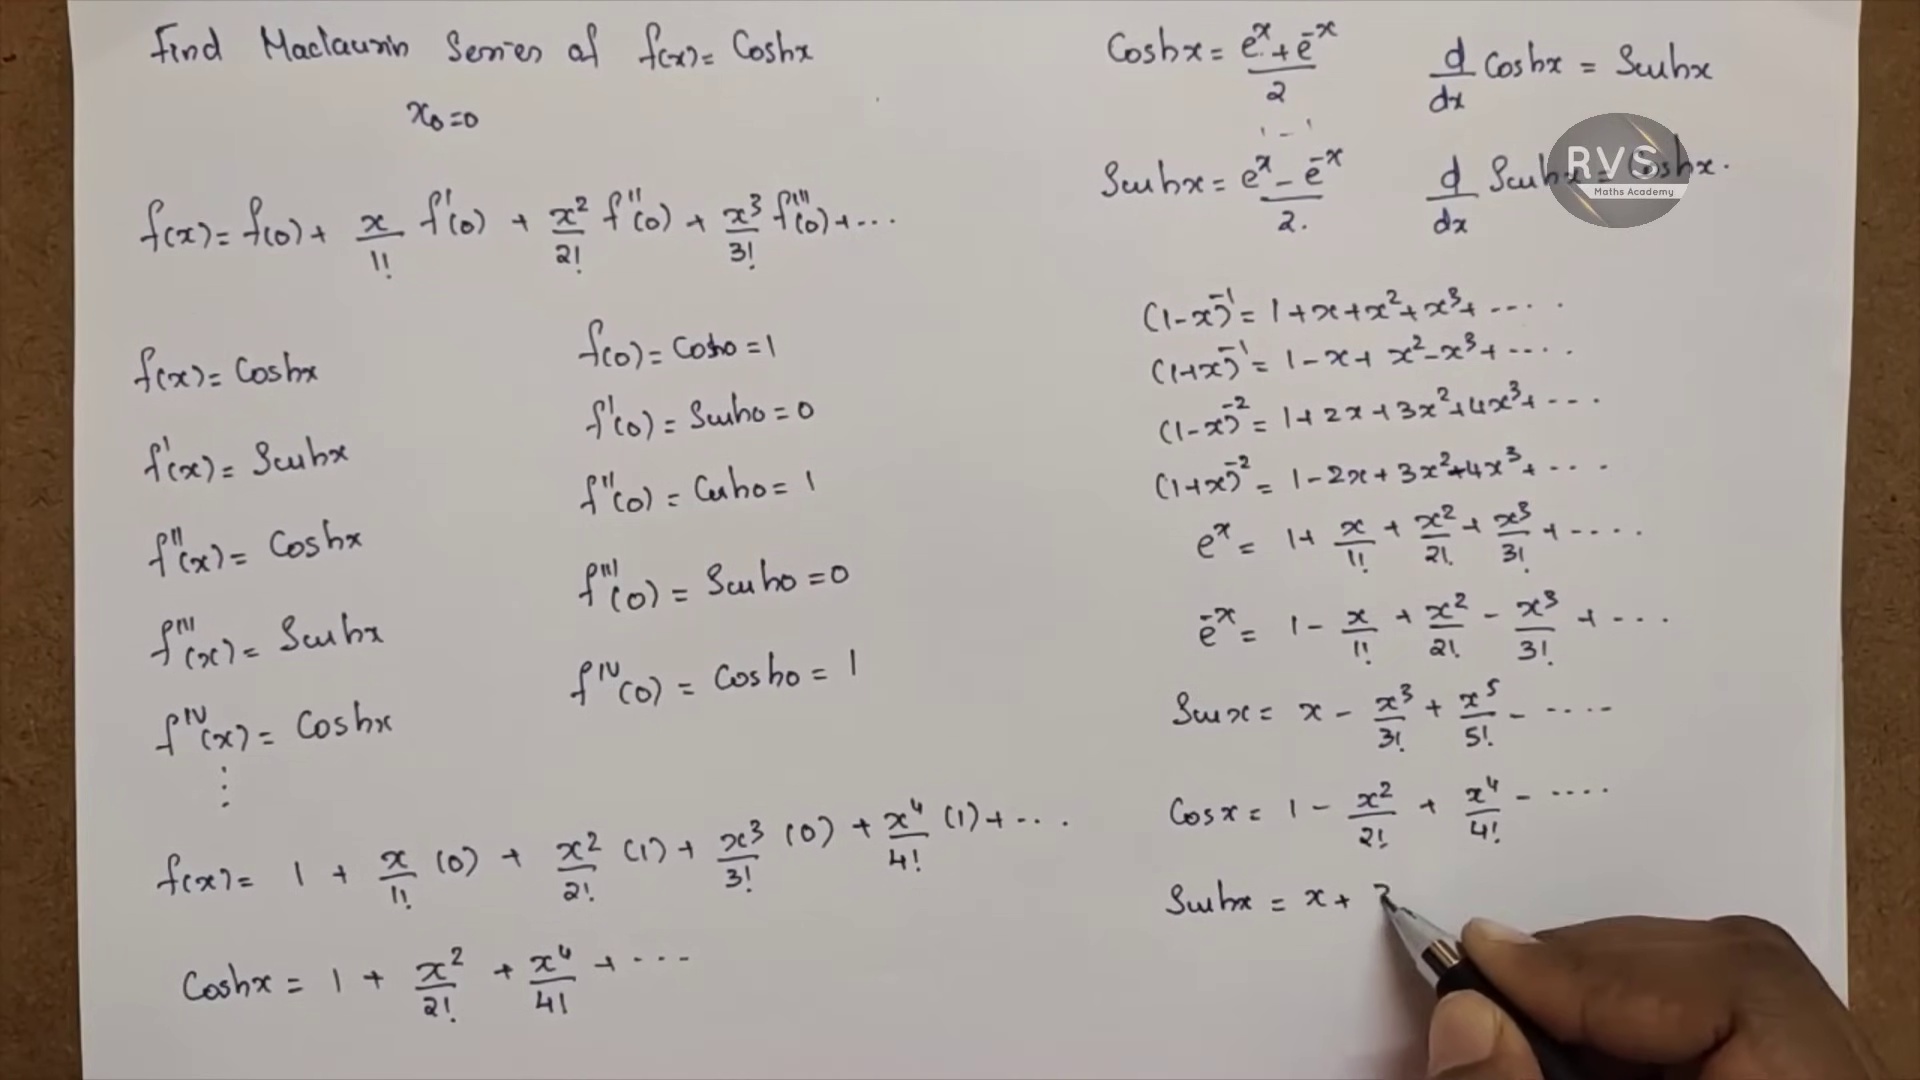 Find Maclaurin Series of f(x) = Coshx
x₀=0
f(x) = f(0) + x/1! f'(0) + x²/2! f''(0) + x³/3! f'''(0) + ...
f(x) = Coshx
f(0) = Cosh0 = 1
f'(x) = Sinhx
f'(0) = Sinh0 = 0
f''(x) = Coshx
f''(0) = Cosh0 = 1
f'''(x) = Sinhx
f'''(0) = Sinh0 = 0
f^IV(x) = Coshx
f^IV(0) = Cosh0 = 1
⋮
f(x) = 1 + x/1! (0) + x²/2! (1) + x³/3! (0) + x⁴/4! (1) + ...
Coshx = 1 + x²/2! + x⁴/4! + ...
Coshx = (e^x + e^-x)/2
d/dx Coshx = Sinhx
1 - 1
Sinhx = (e^x - e^-x)/2.
d/dx Sinhx = Coshx.
RVS
Maths Academy
(1-x)^-1 = 1+x+x²+x³+ ....
(1+x)^-1 = 1-x+x²-x³+ ....
(1-x)^-2 = 1+2x+3x²+4x³+ ...
(1+x)^-2 = 1-2x+3x²-4x³+ ...
e^x = 1+ x/1! + x²/2! + x³/3! + ....
e^-x = 1 - x/1! + x²/2! - x³/3! + ...
Sinx = x - x³/3! + x⁵/5! - ....
Cosx = 1 - x²/2! + x⁴/4! - ....
Sinhx = x +